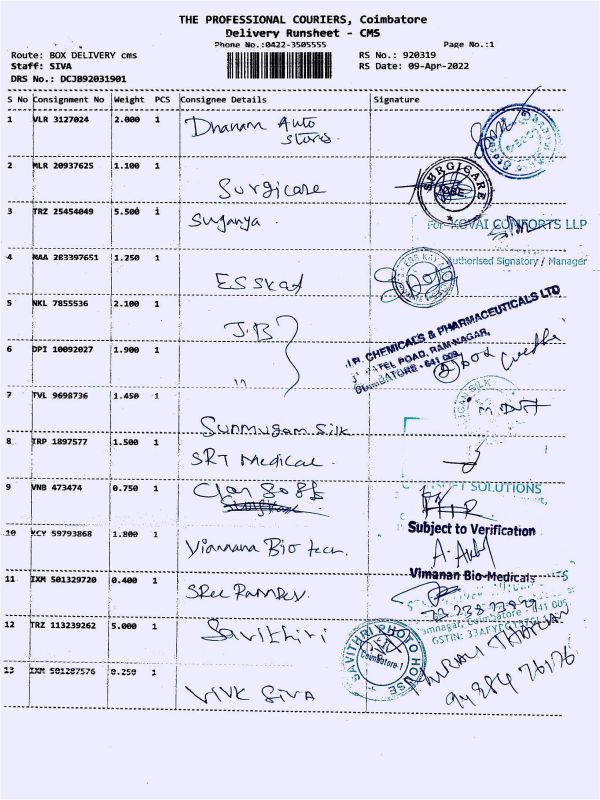 THE PROFESSIONAL COURIERS, Coimbatore
Delivery Runsheet - CMS
Phone No.:0422-3505555
Page No.:1
Route: BOX DELIVERY cms
RS No.: 920319
Staff: SIVA
RS Date: 09-Apr-2022
DRS No.: DCJB92031901
S No Consignment No Weight PCS Consignee Details Signature
1 VLR 3127024 2.000 1 Dhanam Auto
Stores.
2 MLR 20937625 1.100 1 Surgicare
SURGICARE
3 TRZ 25454049 5.500 1 Suganya.
For KOVAI COMFORTS LLP
4 MAA 283397651 1.250 1 ESSKay
Authorised Signatory / Manager
5 NKL 7855536 2.100 1 J.B
J.B. CHEMICALS & PHARMACEUTICALS LTD
PATEL ROAD, RAM NAGAR,
COIMBATORE - 641 009
6 DPI 10092027 1.900 1 "
② box
7 TVL 9698736 1.450 1 Sunmugam Silk
SILK
8 TRP 1897577 1.500 1 SRT Medical.
9 VNB 473474 0.750 1
SOLUTIONS
Subject to Verification
10 KCY 59793868 1.800 1 Viamana Bio tech.
Vimanan Bio-Medicals
11 IXM 501329720 0.400 1 SRee Ramdev.
Coimbatore - 641 009
GSTIN:
12 TRZ 113239262 5.000 1 Savithiri
SAVITHRI PHOTO HOUSE
Coimbatore-1
13 IXM 501287576 0.250 1 VIVK SIVA
94284 76176